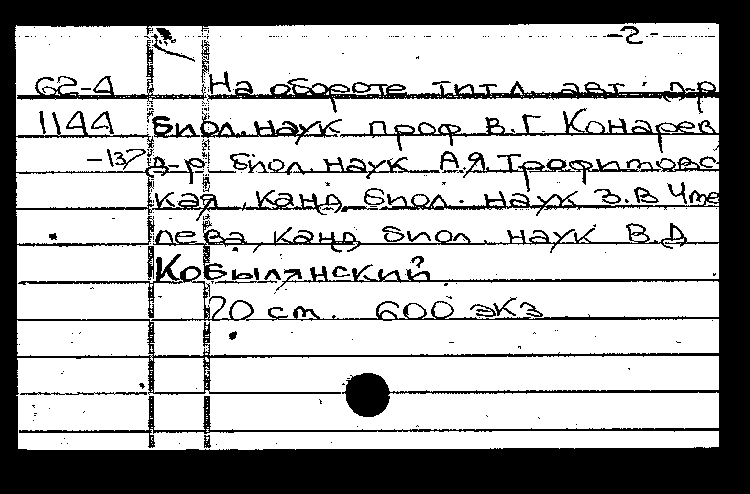 -2-
62-4 На обороте тит л. авт: д-р
1144 биол. наук проф В.Г. Конарев
-137 д-р биол. наук А.Я. Трофимовс
кая, канд. биол. наук З.В Чме
лева, канд биол. наук В.Д
Кобылянский
20 см. 600 экз